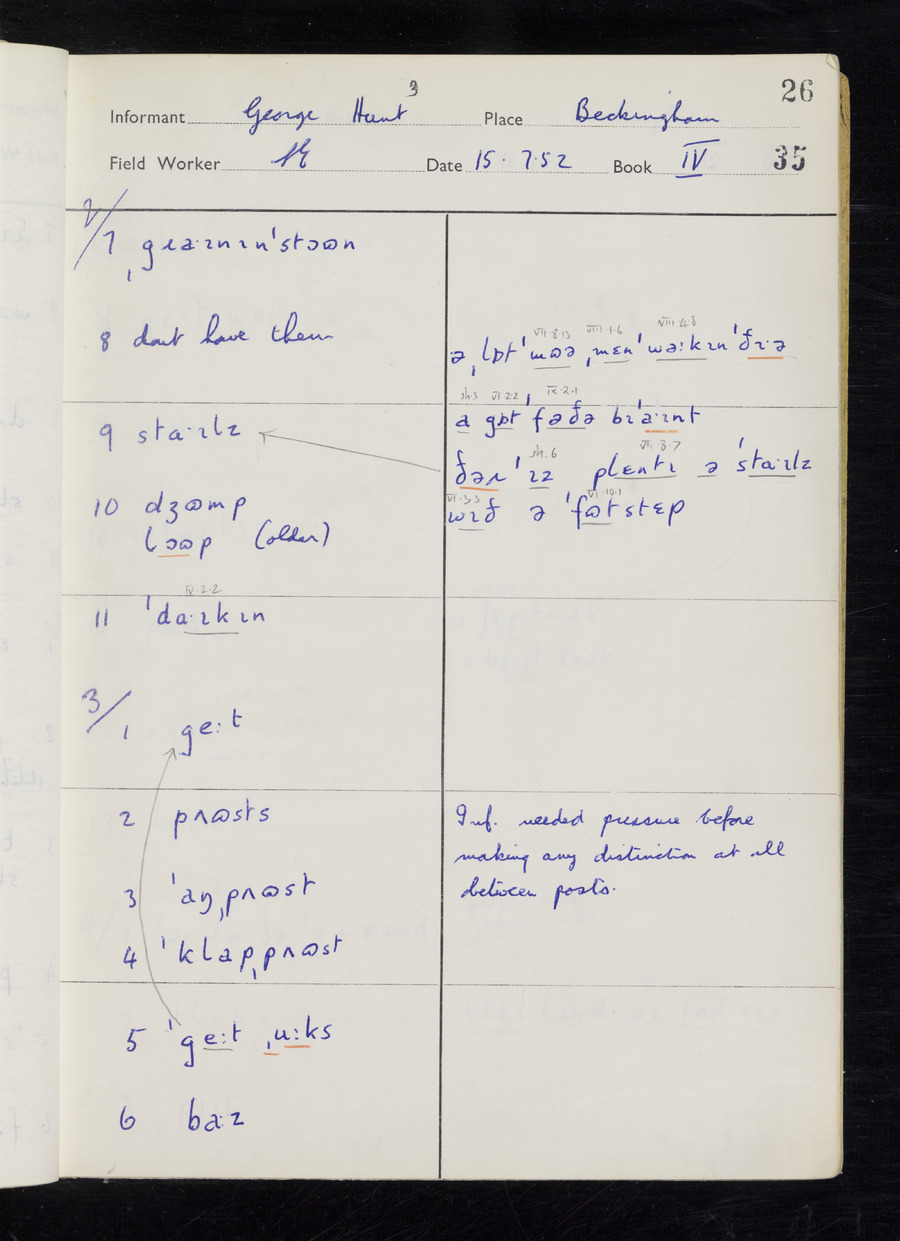 26
Informant George Hunt 3 Place Beckingham
Field Worker Date 15 · 7·52 Book IV 35
2/
7 ˌgɹaːɪnɪn'stɔʊn
8 dont have them
ə ˌlɒt 'mʊə ˌmɛn 'wəːkɪn 'ðɪə
VII·8·13 VIII·1·6 VIII·4·8
a gɒt fəðə bɪ'aːɪnt
sh.3 VI 2·2 IX·2·1
9 staˑɪlz
ðəɹ 'ɪz plɛntɪ ə 'staˑɪlz
sh.6 VI·8·7
wɪð ə 'fʊtstɛp
VI·3·3 VI·10·1
10 dʒʊmp
lɔʊp (older)
11 'daˑɪkɪn
IV·2·2
3/
1 geːt
2 pʌʊsts
Inf. needed pressure before
making any distinction at all
between posts.
3 'aŋˌpʌʊst
4 'klapˌpʌʊst
5 'geːt ˌuːks
6 baːz